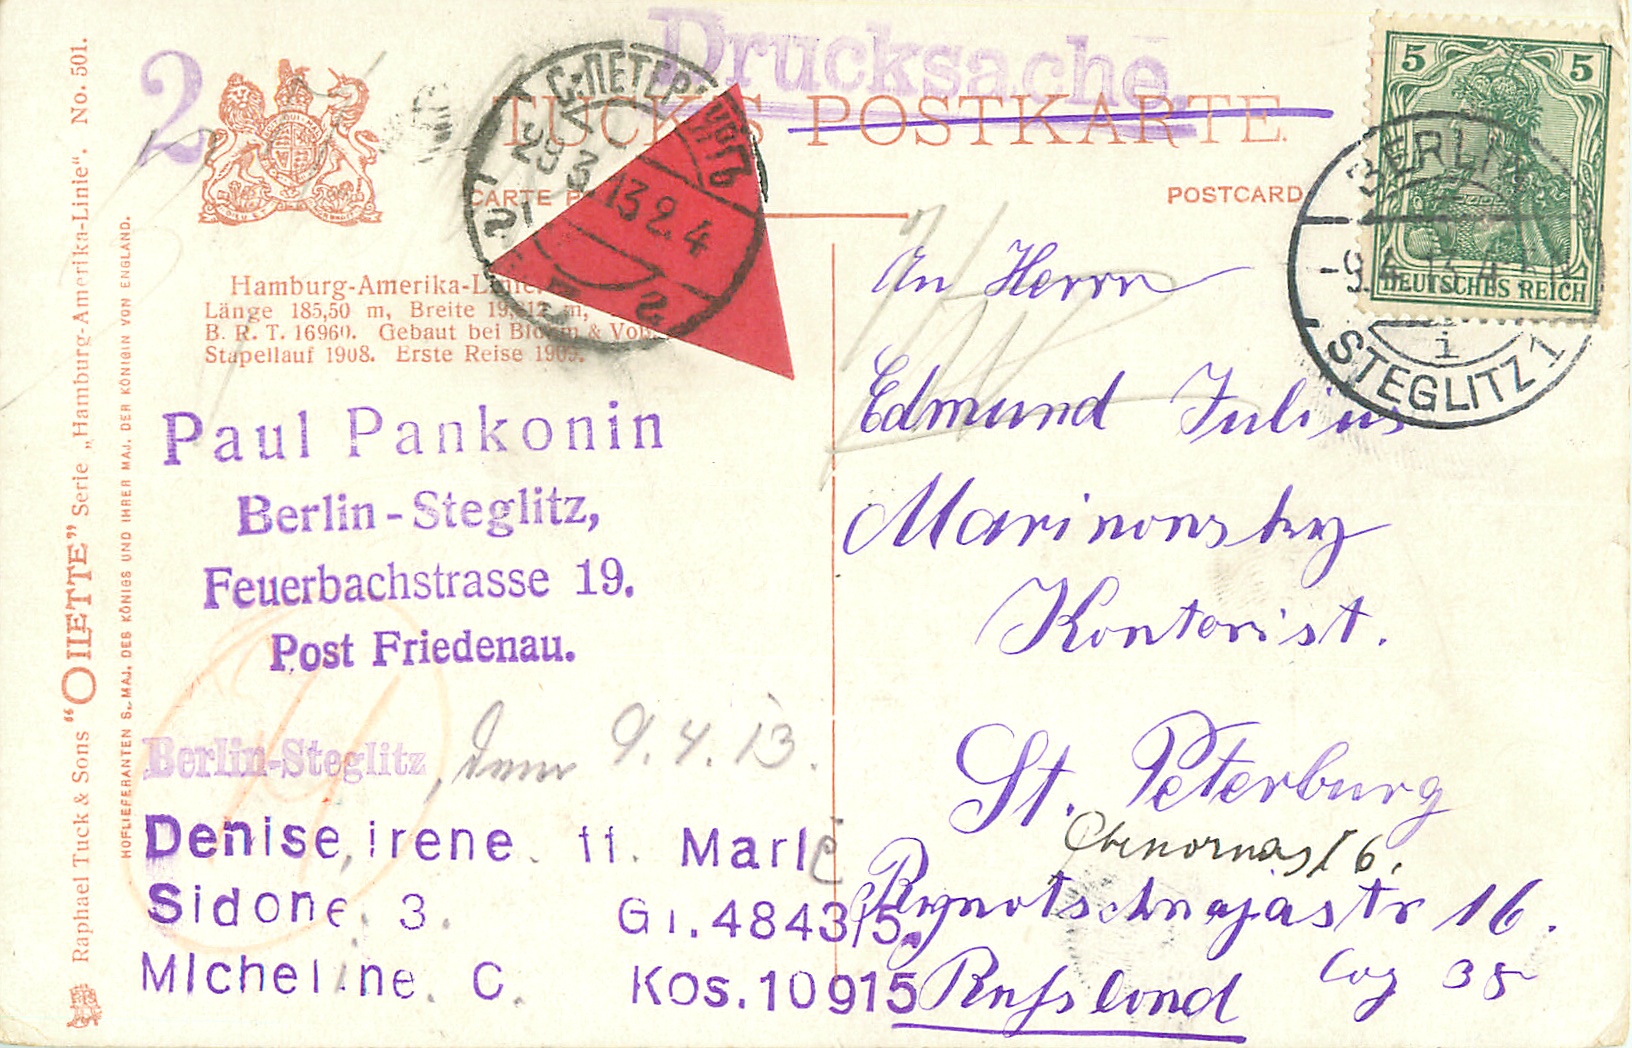 Drucksache
2
TUCK'S POSTKARTE.
CARTE P
POSTCARD
5 5
DEUTSCHES REICH
BERLIN
-9.4.13.4
STEGLITZ 1
i
С·ПЕТЕРБУРГЪ
29 3
13 2.4
Hamburg-Amerika-Linie.
Länge 185,50 m, Breite 19,812 m,
B. R. T. 16960. Gebaut bei Blohm & Voß.
Stapellauf 1908. Erste Reise 1909.
Raphael Tuck & Sons "OILETTE" Serie „Hamburg-Amerika-Linie". No. 501.
HOFLIEFERANTEN S. MAJ. DES KÖNIGS UND IHRER MAJ. DER KÖNIGIN VON ENGLAND.
Paul Pankonin
Berlin-Steglitz,
Feuerbachstrasse 19.
Post Friedenau.
Berlin-Steglitz, den 9.4.13.
Denise, irene. 11. Marie
Sidone. 3. Gi.4843/5.
Micheline. C. Kos.10915
An Herrn
Edmund Julius
Marinonsky
Kontorist.
St. Peterburg
16.
16.
38
Russland